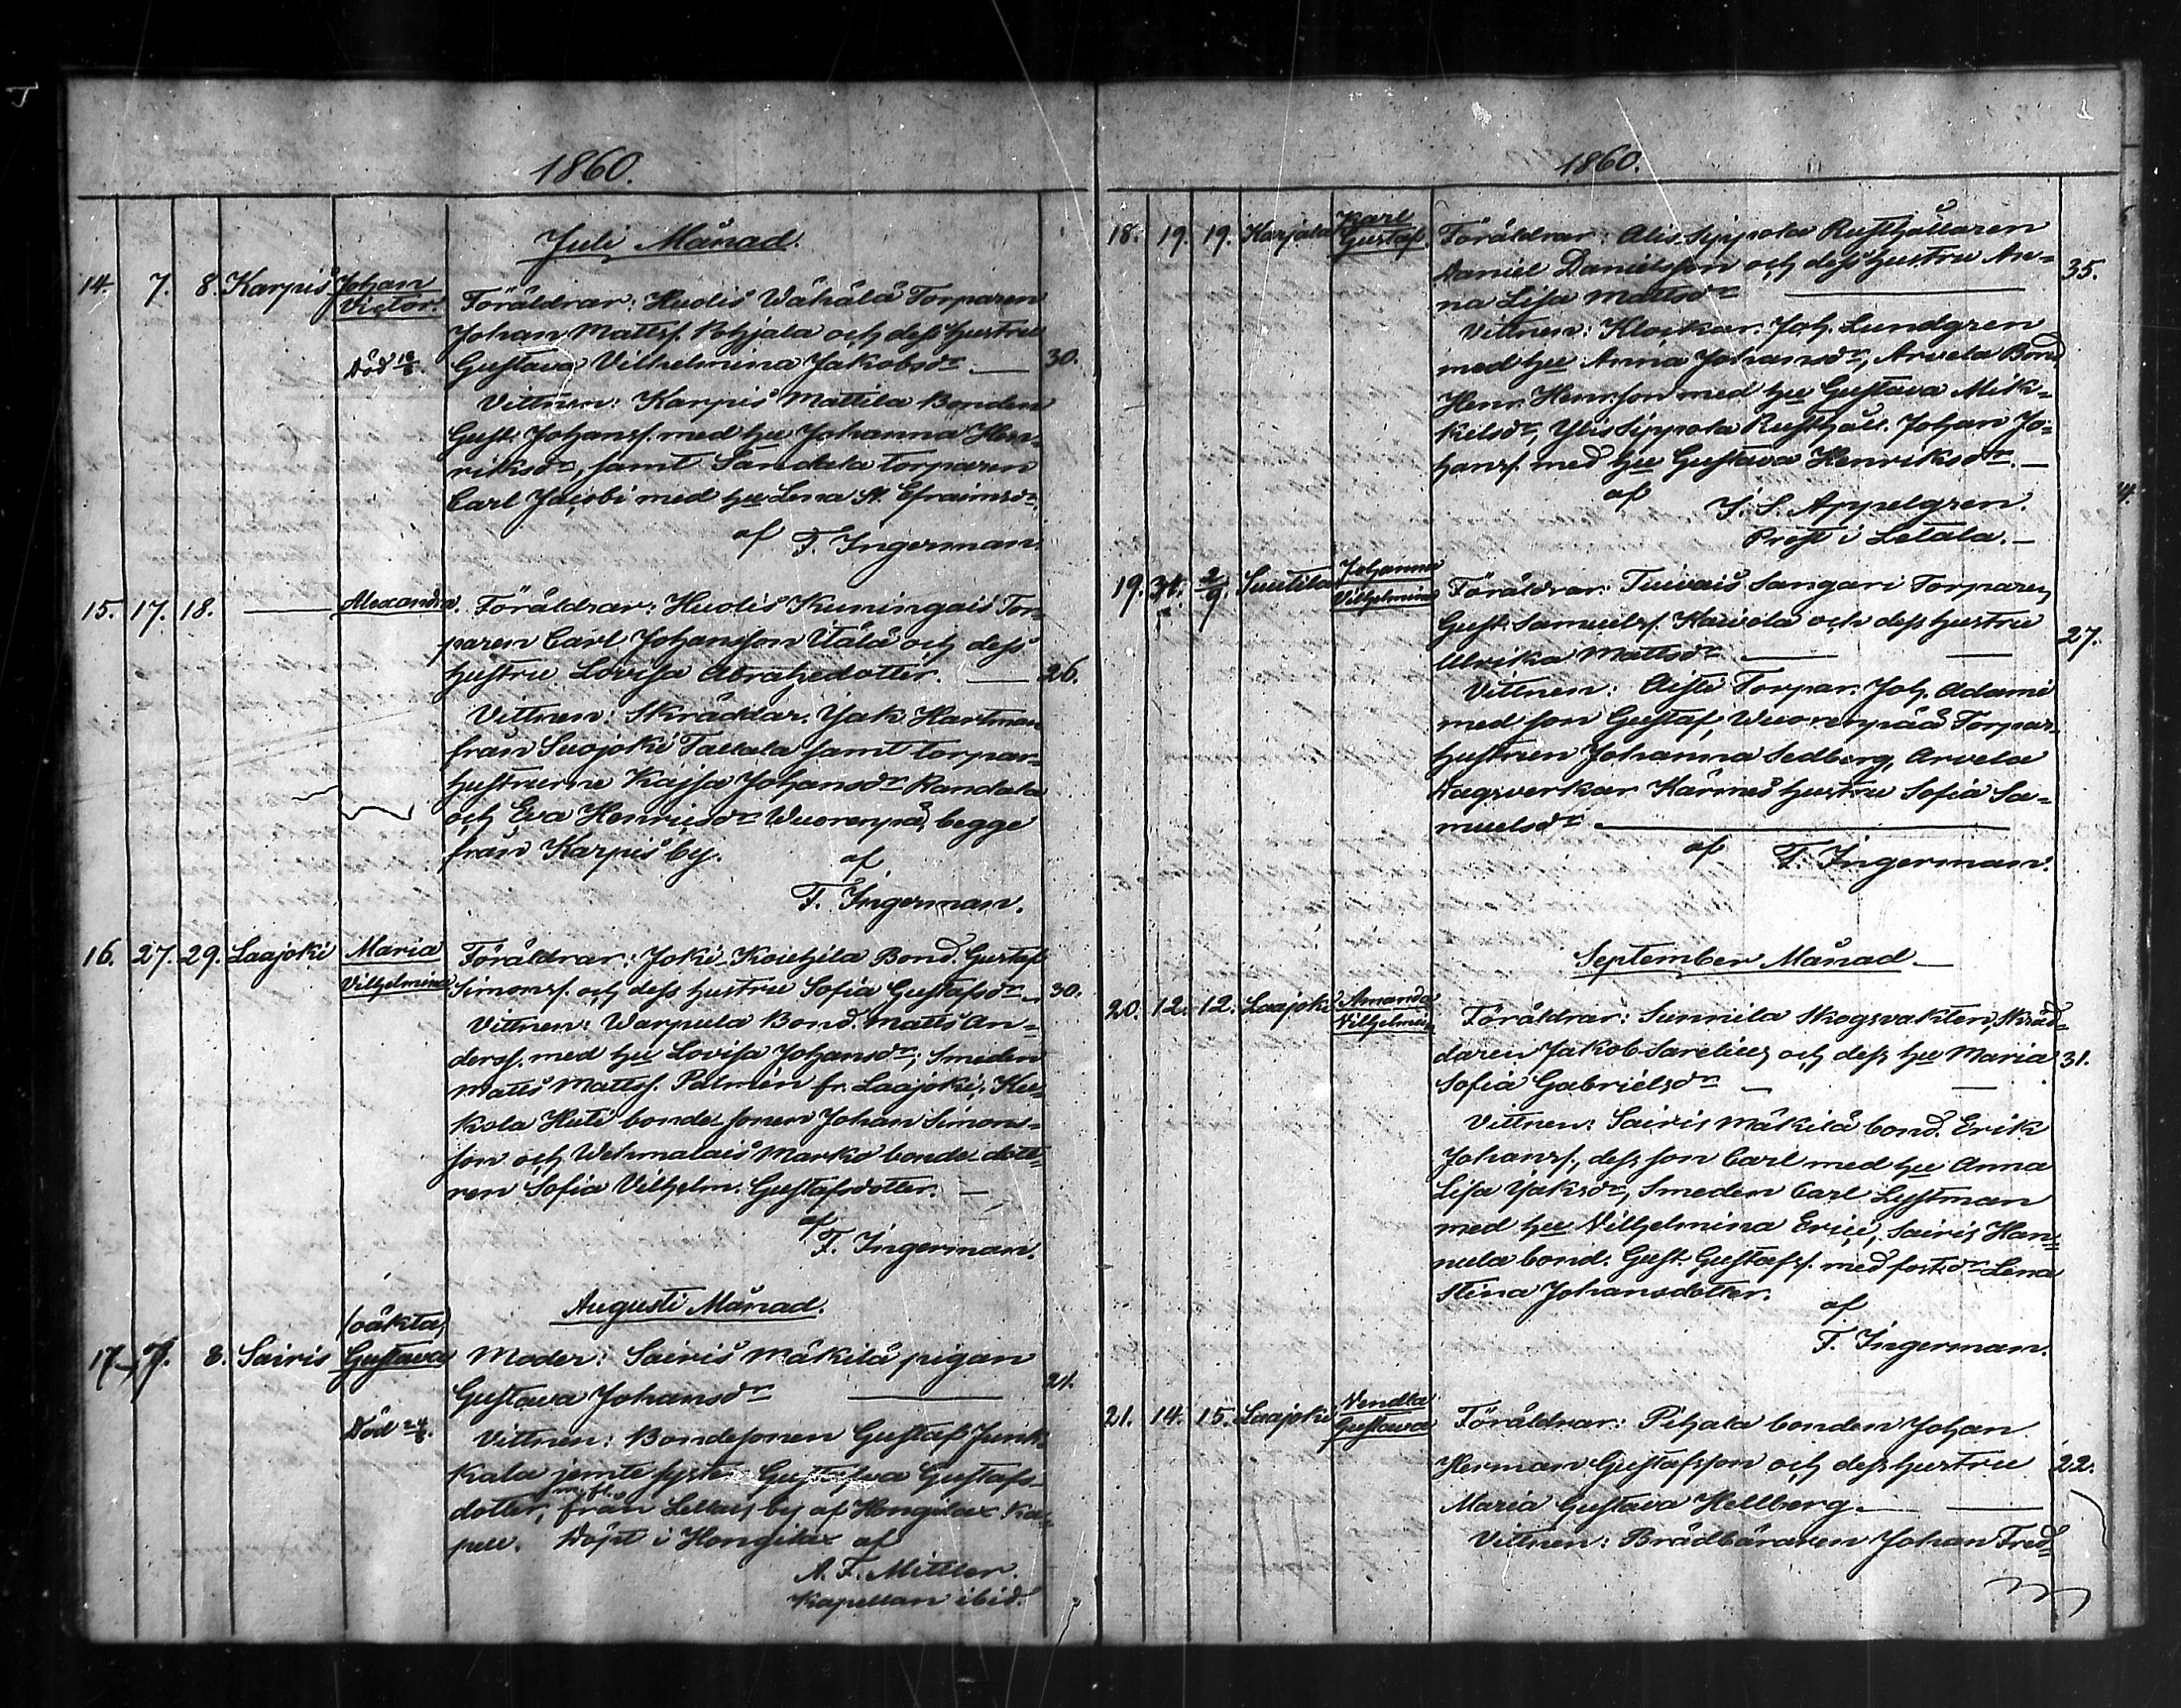 1860.
Juli Månad.
14. 7. 8. Karpis Johan Victor. Död
Föräldrar: Huolis Wähälä Torparen
Johan Mattss. Pohjala och dess hustru
Gustava Vilhelmina Jakobsdr — 30.
Vittnen: Karpis Mattila Bonden
Gust. Johanss. med hu Johanna Hen-
riksdr, samt Sandala torparen
Carl Jacobi med hu Lena St. Efraimsdr
af F. Ingerman.
15. 17. 18. — Alexandra.
Föräldrar: Huolis Kuningais Tor-
paren Carl Johansson Utälä och dess
hustru Lovisa Abrahsdotter. — 26.
Vittnen: Skräddar. Jak. Hartman
från Suojoki Tallala samt torpar-
hustrurne Kajsa Johansdr Randala
och Eva Henricsdr Wuorenpä, begge
från Karpis by. af
F. Ingerman.
16. 27. 29. Laajoki Maria Vilhelmina
Föräldrar: Joki-Kouhila Bond. Gustaf
Simonss. och dess hustru Sofia Gustafsdr — 30.
Vittnen: Warpula Bond. Matts An-
derss. med hu Lovisa Johansdr; Smeden
Matts Mattss. Palmén fr. Laajoki; Ku-
kola Huti bonde sonen Johan Simons-
son och Wehmalais Marko bonde dott-
ren Sofia Vilhelm. Gustafsdotter. —
af
F. Ingerman.
Augusti Månad.
17. 7. 8. Sairis (oäkta) Gustava Död
Moder: Sairis Mäkilä pigan
Gustava Johansdr — 21.
Vittnen: Bondesonen Gustaf Junk-
kala jemte syster Gustava Gustafs-
dotter, m. fl. från Lellais by af Hongilax Ka-
pell. Döpt i Hongilax af
A. F. Mittler.
Kapellan ibid.
1860.
18. 19. 19. Karjala Karl Gustaf.
Föräldrar: Alis. Sippola Rusthållaren
Daniel Danielsson och dess hustru An- 35.
na Lisa Mattsdr —
Vittnen: Klockar. Joh. Lundgren
med hu Anna Johansdr, Arvela Bond.
Henr. Henrsson med hu Gustava Mik-
kelsdr, Ylis Sippola Rusthåll. Johan Jo-
hanss. med hu Gustava Henriksdr. —
af J. S. Appelgren.
Prest i Letala. —
19. 31. 2/9. Suutila Johanna Vilhelmina
Föräldrar: Tuivais Sangari Torparen
Gust. Samuelss. Kaivola och dess hustru 27.
Ulrika Mattsdr —
Vittnen: Aisti Torpar. Joh. Adami
med son Gustaf, Wuorenpää Torpar-
hustrun Johanna Sedberg, Arvela
Dagsverkar Kärnes hustru Sofia Sa-
muelsdr —
af F. Ingerman.
September Månad —
20. 12. 12. Laajoki Amanda Vilhelmina
Föräldrar: Sunnila Skogsvakten, Skräd-
daren Jakob Sarelius och dess hu Maria 31.
Sofia Gabrielsdr —
Vittnen: Sairis Mäkilä bond. Erik
Johanss., dess son Carl med hu Anna
Lisa Jaksdr, Smeden Carl Lystman
med hu Vilhelmina Erici, Sairis Han-
nula bond. Gust. Gustafss. med fostdr Lena
Stina Johansdotter.
af
F. Ingerman.
21. 14. 15. Laajoki Vendla Gustava
Föräldrar: Pihala bonden Johan
Herman Gustafsson och dess hustru 22.
Maria Gustava Hellberg. —
Vittnen: Brädbäraren Johan Fred-